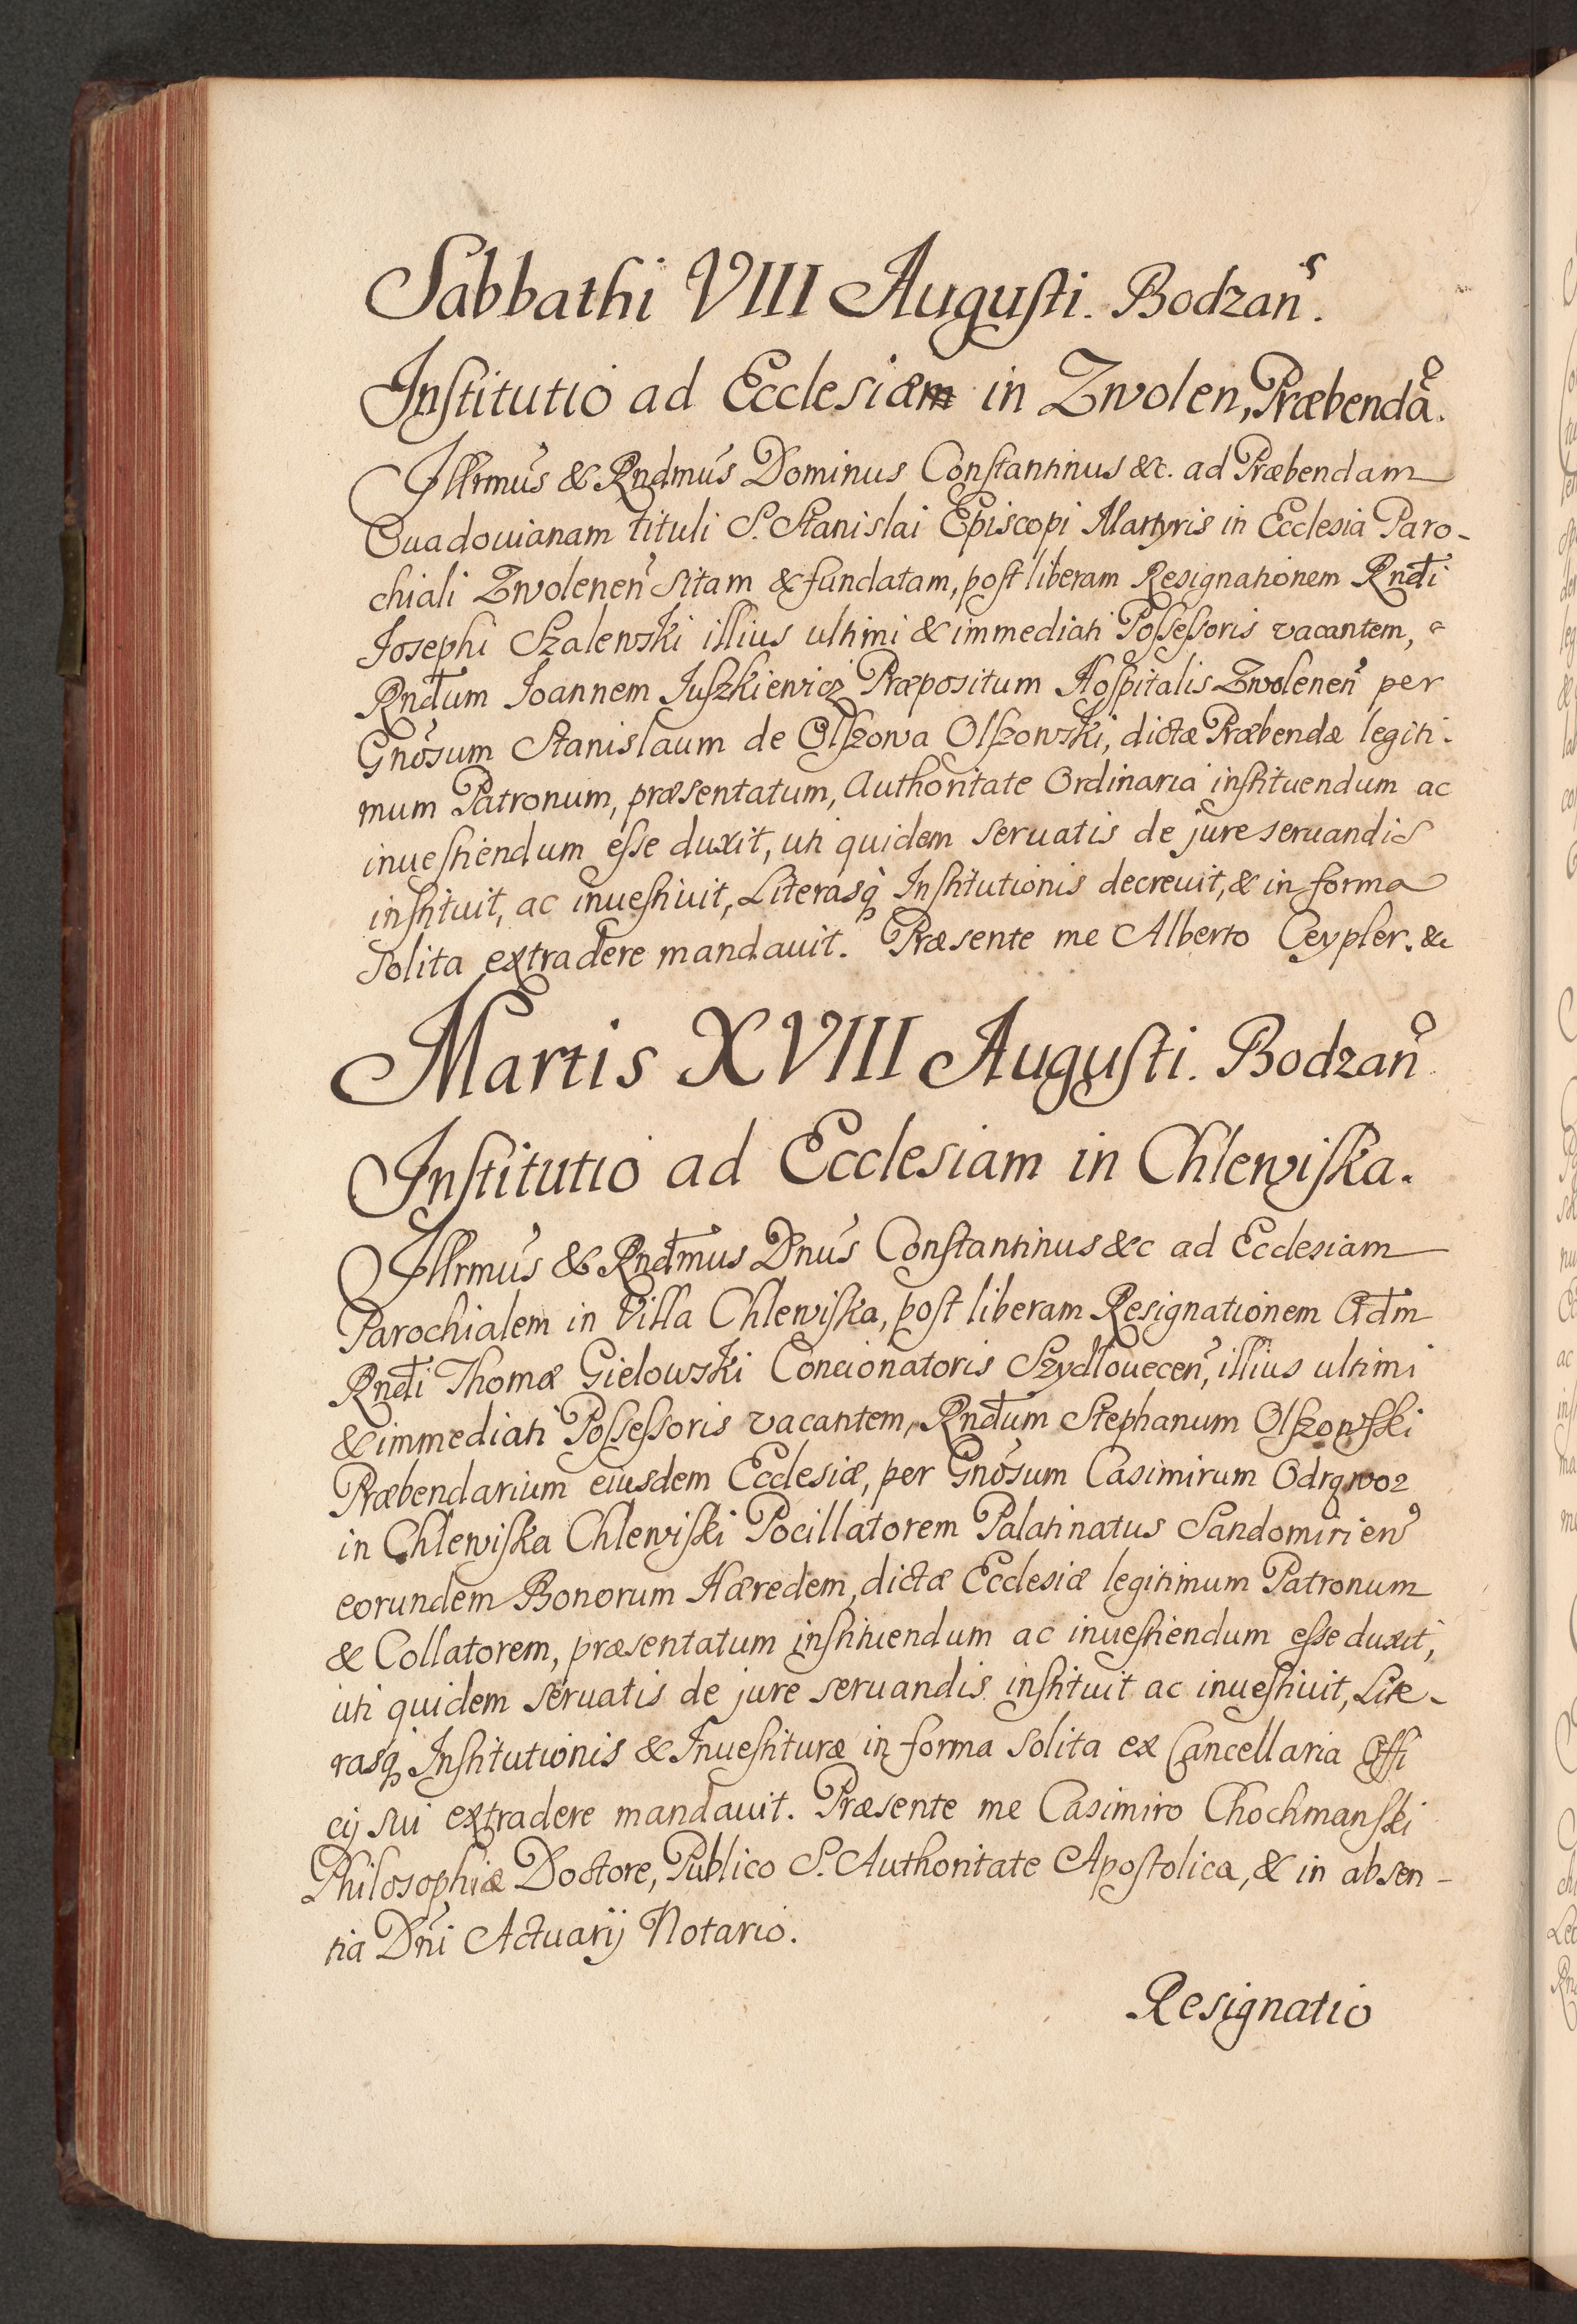 Sabbathi VIII Augusti. Bodzań.
Institutio ad Ecclesiam in Zwolen, Præbendã.
Illrmus & Rndmus Dominus Constantinus &c. ad Præbendam
Cuadouianam tituli S. Stanislai Episcopi Martyris in Ecclesia Paro-
chiali Zwolenen̄ sitam & fundatam, post liberam Resignationem Rndi
Josephi Szalewski illius ultimi & immediati Possessoris vacantem,
Rndum Joannem Juszkiewicz Præpositum Hospitalis Zwolenen̄ per
Gnosum Stanislaum de Olszowa Olszowski, dictæ Præbendæ legiti-
mum Patronum, præsentatum, Authoritate Ordinaria instituendum ac
inuestiendum esse duxit, uti quidem seruatis de jure seruandis
instituit, ac inuestiuit, Literasq̃ Institutionis decreuit, & in forma
solita extradere mandauit. Præsente me Alberto Ceypler. &c
Martis XVIII Augusti. Bodzan̄
Institutio ad Ecclesiam in Chlewiska.
Illrmus & Rndmus Dnus Constantinus &c ad Ecclesiam
Parochialem in Villa Chlewiska, post liberam Resignationem Adm
Rndi Thomæ Gielowski Concionatoris Szydlouecen̄, illius ultimi
& immediati Possessoris vacantem, Rndum Stephanum Olszowski
Præbendarium eiusdem Ecclesiæ, per Gnosum Casimirum Odrąwoz
in Chlewiska Chlewiski Pocillatorem Palatinatus Sandomirien̄
eorundem Bonorum Hæredem, dictæ Ecclesiæ legitimum Patronum
& Collatorem, præsentatum instituendum ac inuestiendum esse duxit,
uti quidem seruatis de jure seruandis instituit ac inuestiuit, Lite-
rasq̃ Institutionis & Inuestituræ in forma solita ex Cancellaria Offi
cij sui extradere mandauit. Præsente me Casimiro Chochmanski
Philosophiæ Doctore, Publico S. Authoritate Apostolica, & in absen-
tia Dni Actuarij Notario.
Resignatio